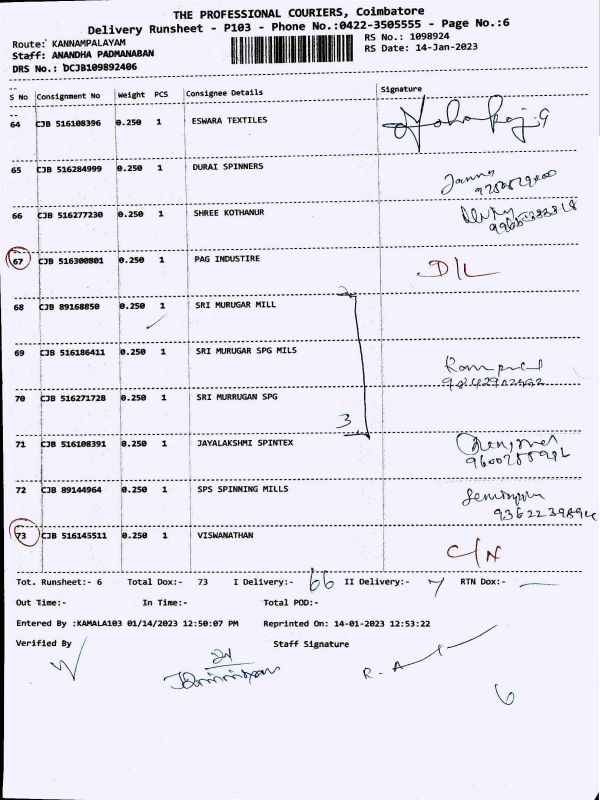 THE PROFESSIONAL COURIERS, Coimbatore
Delivery Runsheet - P103 - Phone No.:0422-3505555 - Page No.:6
Route: KANNAMPALAYAM RS No.: 1098924
Staff: ANANDHA PADMANABAN RS Date: 14-Jan-2023
DRS No.: DCJB109892406
S No Consignment No Weight PCS Consignee Details Signature
64 CJB 516108396 0.250 1 ESWARA TEXTILES
65 CJB 516284999 0.250 1 DURAI SPINNERS
66 CJB 516277230 0.250 1 SHREE KOTHANUR
67 CJB 516300801 0.250 1 PAG INDUSTIRE D/L
68 CJB 89168850 0.250 1 SRI MURUGAR MILL
69 CJB 516186411 0.250 1 SRI MURUGAR SPG MILS
70 CJB 516271728 0.250 1 SRI MURRUGAN SPG
3
71 CJB 516108391 0.250 1 JAYALAKSHMI SPINTEX
72 CJB 89144964 0.250 1 SPS SPINNING MILLS
73 CJB 516145511 0.250 1 VISWANATHAN C/N
Tot. Runsheet:- 6 Total Dox:- 73 I Delivery:- 66 II Delivery:- 7 RTN Dox:- —
Out Time:- In Time:- Total POD:-
Entered By :KAMALA103 01/14/2023 12:50:07 PM Reprinted On: 14-01-2023 12:53:22
Verified By Staff Signature
6